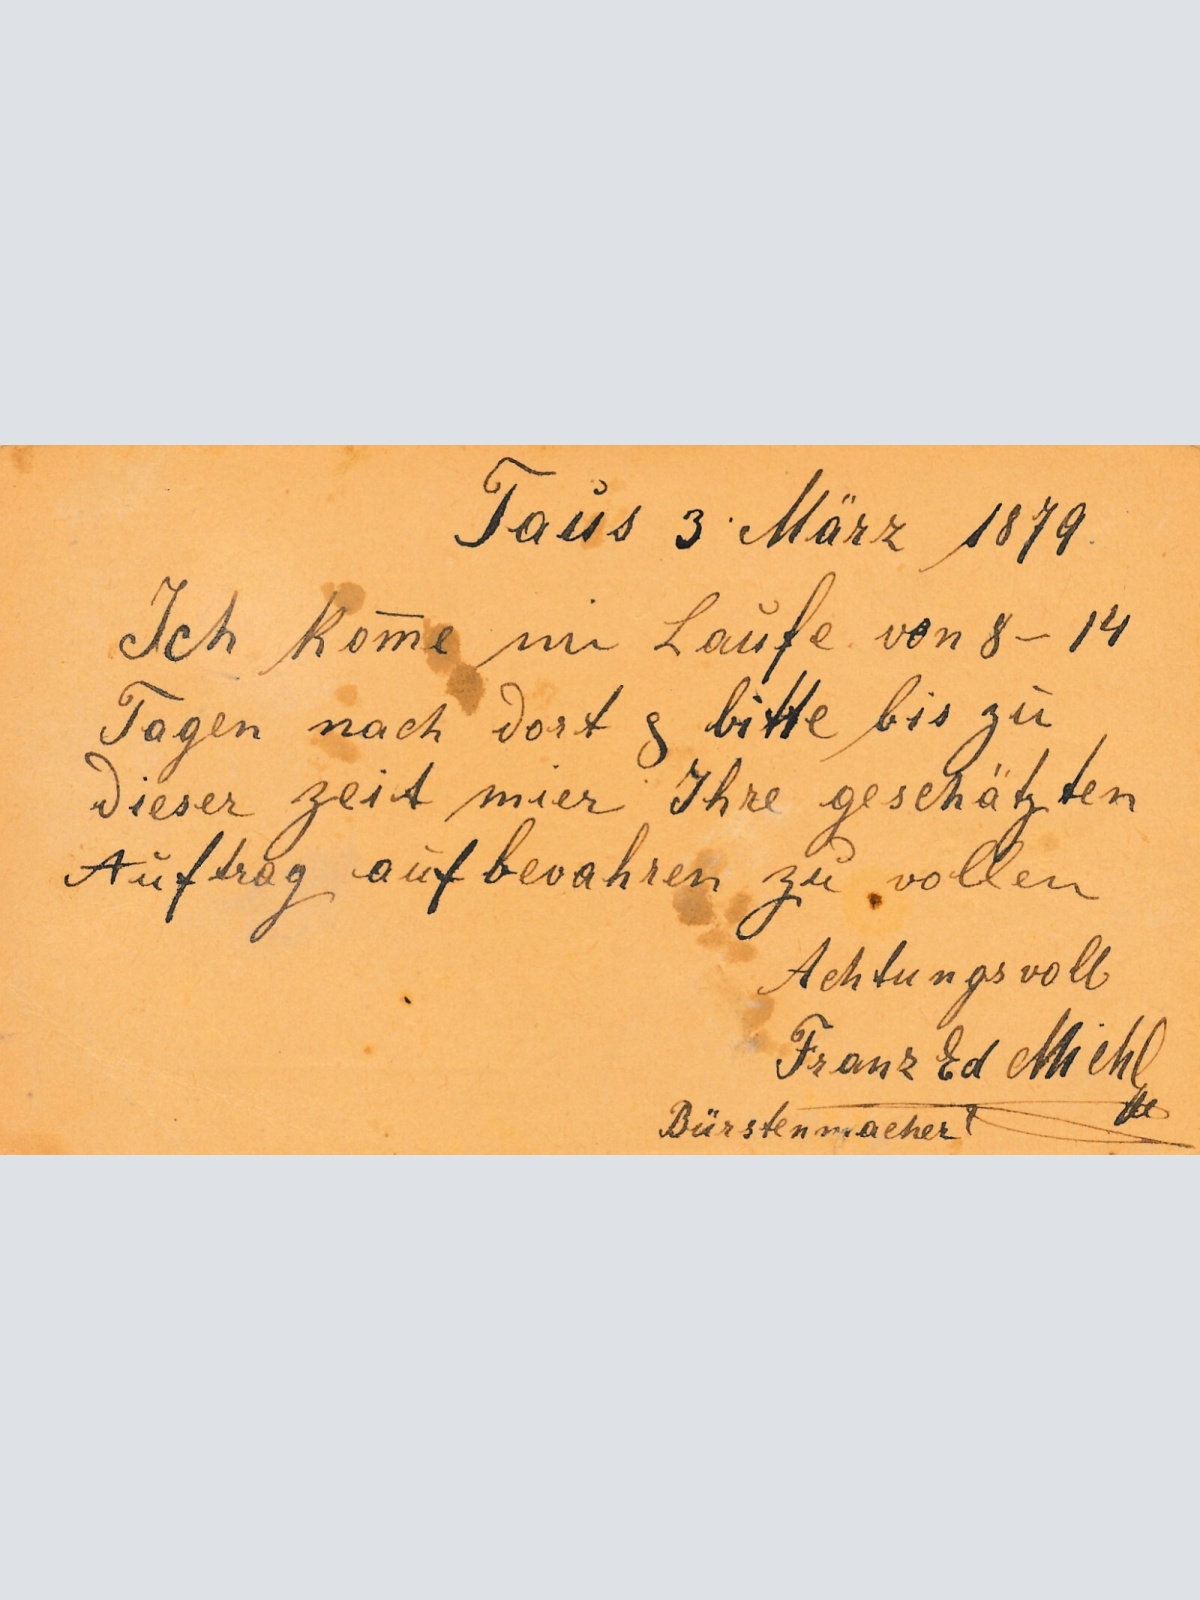 Taus 3. März 1879.
Ich kom̄e im Laufe von 8 – 14
Tagen nach dort & bitte bis zu
dieser zeit mier Ihre geschätzten
Auftrag aufbevahren zu vollen
Achtungsvoll
Franz Ed Michl
Bürstenmacher